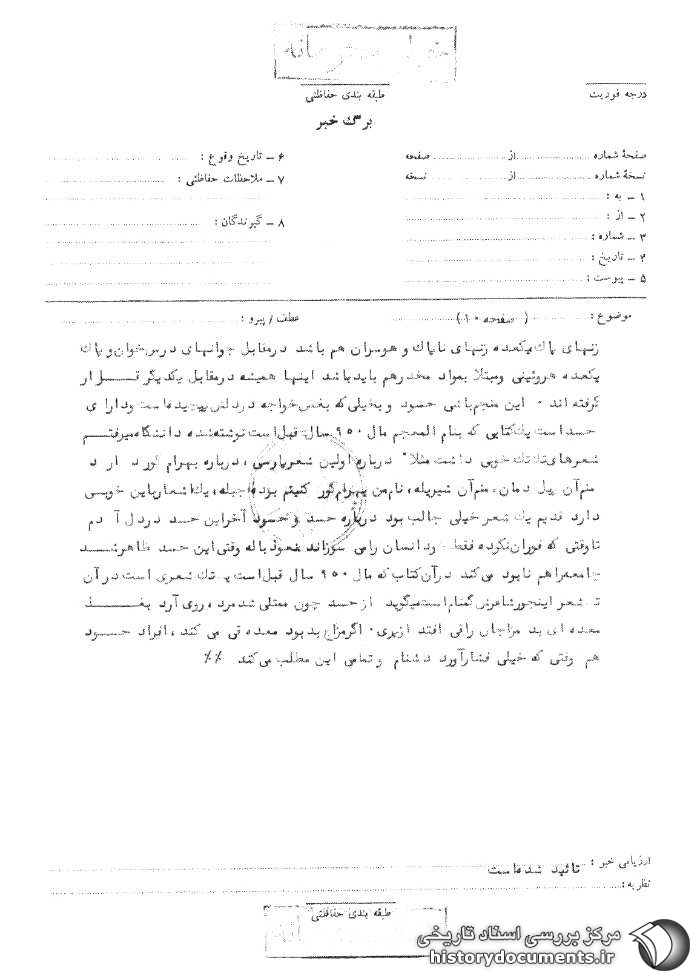 خیلی محرمانه
طبقه بندی حفاظتی
درجه فوریت
برگ خبر
صفحهٔ شماره ........ از ........ صفحه
نسخهٔ شماره ........ از ........ نسخه
۱ ــ به :
۲ ــ از :
۳ ــ شماره :
۴ ــ تاریخ :
۵ ــ پیوست :
۶ ــ تاریخ وقوع :
۷ ــ ملاحظات حفاظتی :
۸ ــ گیرندگان :
موضوع : ( صفحه ۱۰ ) عطف / پیرو :
زنهای پاک یکعده زنهای ناپاک و هوسران هم باشد درمقابل جوانهای درس خوان و پاک
یکعده هروئینی ومبتلا بمواد مخدرهم بایدباشد اینها همیشه درمقابل یکدیگر قــرار
گرفته اند ۰ این منجم باشی حسود و بخیلی که بغض خواجه دردلش پیچیده است ودارای
حسد است یک کتابی که بنام المعجم مال ۹۵۰ سال قبل است نوشته شده دانشگاه میرفتــم
شعرهای تک تک خوبی داشت مثلا" درباره اولین شعر پارسی ، درباره بهرام گور دارد
منم آن پیل دمان ، منم آن شیریله ، نام من بهرام گور کنیتم بوده اجبله ، یک اشعار باین خوبــی
دارد قدیم یک شعر خیلی جالب بود درباره حسد و حسود آخر این حسد دردل آدم
تا وقتی که فوران نکرده فقط خودانسان را می سوزاند نعوذ بالله وقتی این حسد ظاهر شــد
جامعه راهم نابود می کند درآن کتاب که مال ۹۵۰ سال قبل است یک تک شعری است در آن
شعر اینجور شاعرش گمنام است میگوید از حسد چون ممتلی شد مرد ، روی آرد بغــذ
معده ای بد مزاجان را قی افتد از بری ۰ اگر مزاج بد بود معده قی می کند ، افراد حســود
هم وقتی که خیلی فشار آورد دشنام و تمامی این مطلب می کند ٪٪
ارزیابی خبر : تائید شده است
نظریه :
طبقه بندی حفاظتی
مرکز بررسی اسناد تاریخی
historydocuments.ir